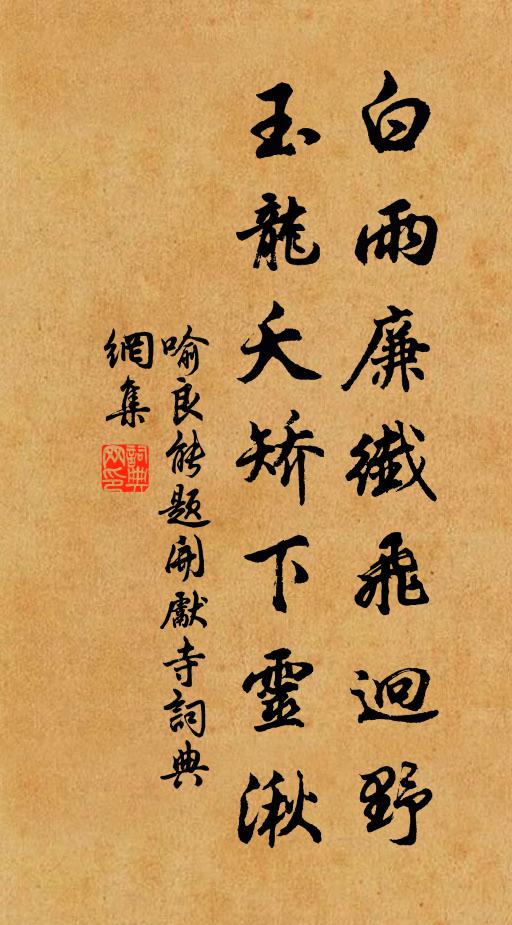 白雨廉纖飛迥野
玉龍夭矯下靈湫
喻良能題開獻寺詞典
網集
詞典網印